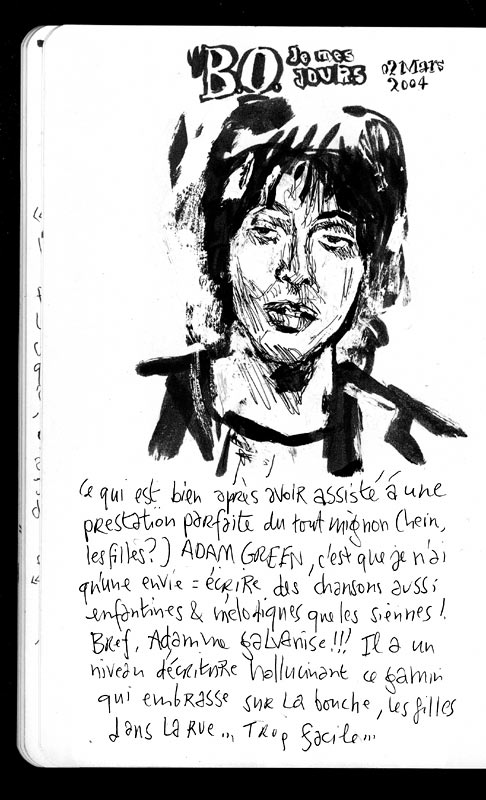 "B.O. De mes
JOURS
02 Mars
2004
Ce qui est bien après avoir assisté à une
prestation parfaite du tout mignon (hein,
les filles?) ADAM GREEN, c'est que je n'ai
qu'une envie = écrire des chansons aussi
enfantines & mélodiques que les siennes!
Bref, Adam me galvanise!!! Il a un
niveau d'écriture hallucinant ce gamin
qui embrasse sur la bouche, les filles
dans la rue... Trop facile...